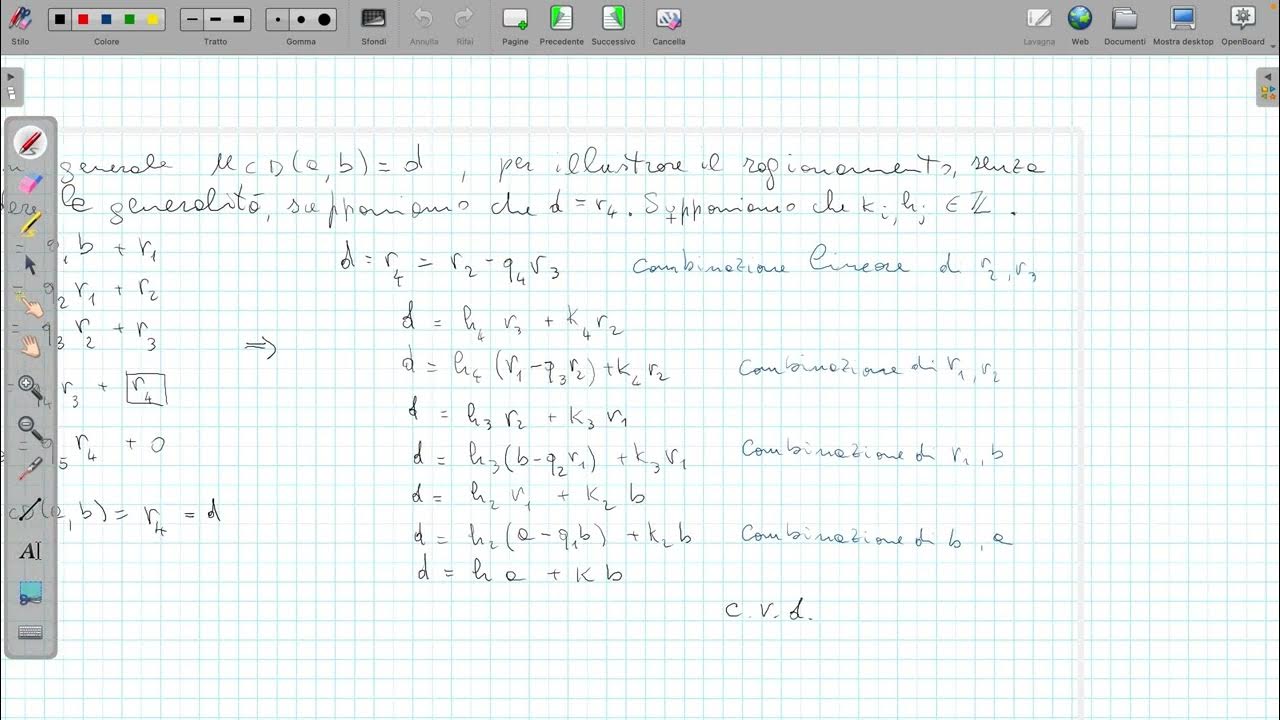 Stilo Colore Tratto Gomma Sfondi Annulla Rifai Pagine Precedente Successivo Cancella Lavagna Web Documenti Mostra desktop OpenBoard
generale MCD(a,b) = d , per illustrare il ragionamento, senza
dere la generalità, supponiamo che d = r₄. Supponiamo che kᵢ, hⱼ ∈ ℤ.
= q₁b + r₁
d = r₄ = r₂ - q₄r₃ combinazione lineare di r₂, r₃
= q₂r₁ + r₂
d = h₄ r₃ + k₄ r₂
= q₃r₂ + r₃
⇒
d = h₄(r₁ - q₃r₂) + k₄ r₂ Combinazione di r₁, r₂
= q₄r₃ + r₄
d = h₃ r₂ + k₃ r₁
= q₅r₄ + 0
d = h₃(b - q₂r₁) + k₃r₁ Combinazione di r₁, b
d = h₂ r₁ + k₂ b
CD(a,b) = r₄ = d
d = h₂(a - q₁b) + k₂b Combinazione di b, a
AI
d = h a + k b
c.v.d.